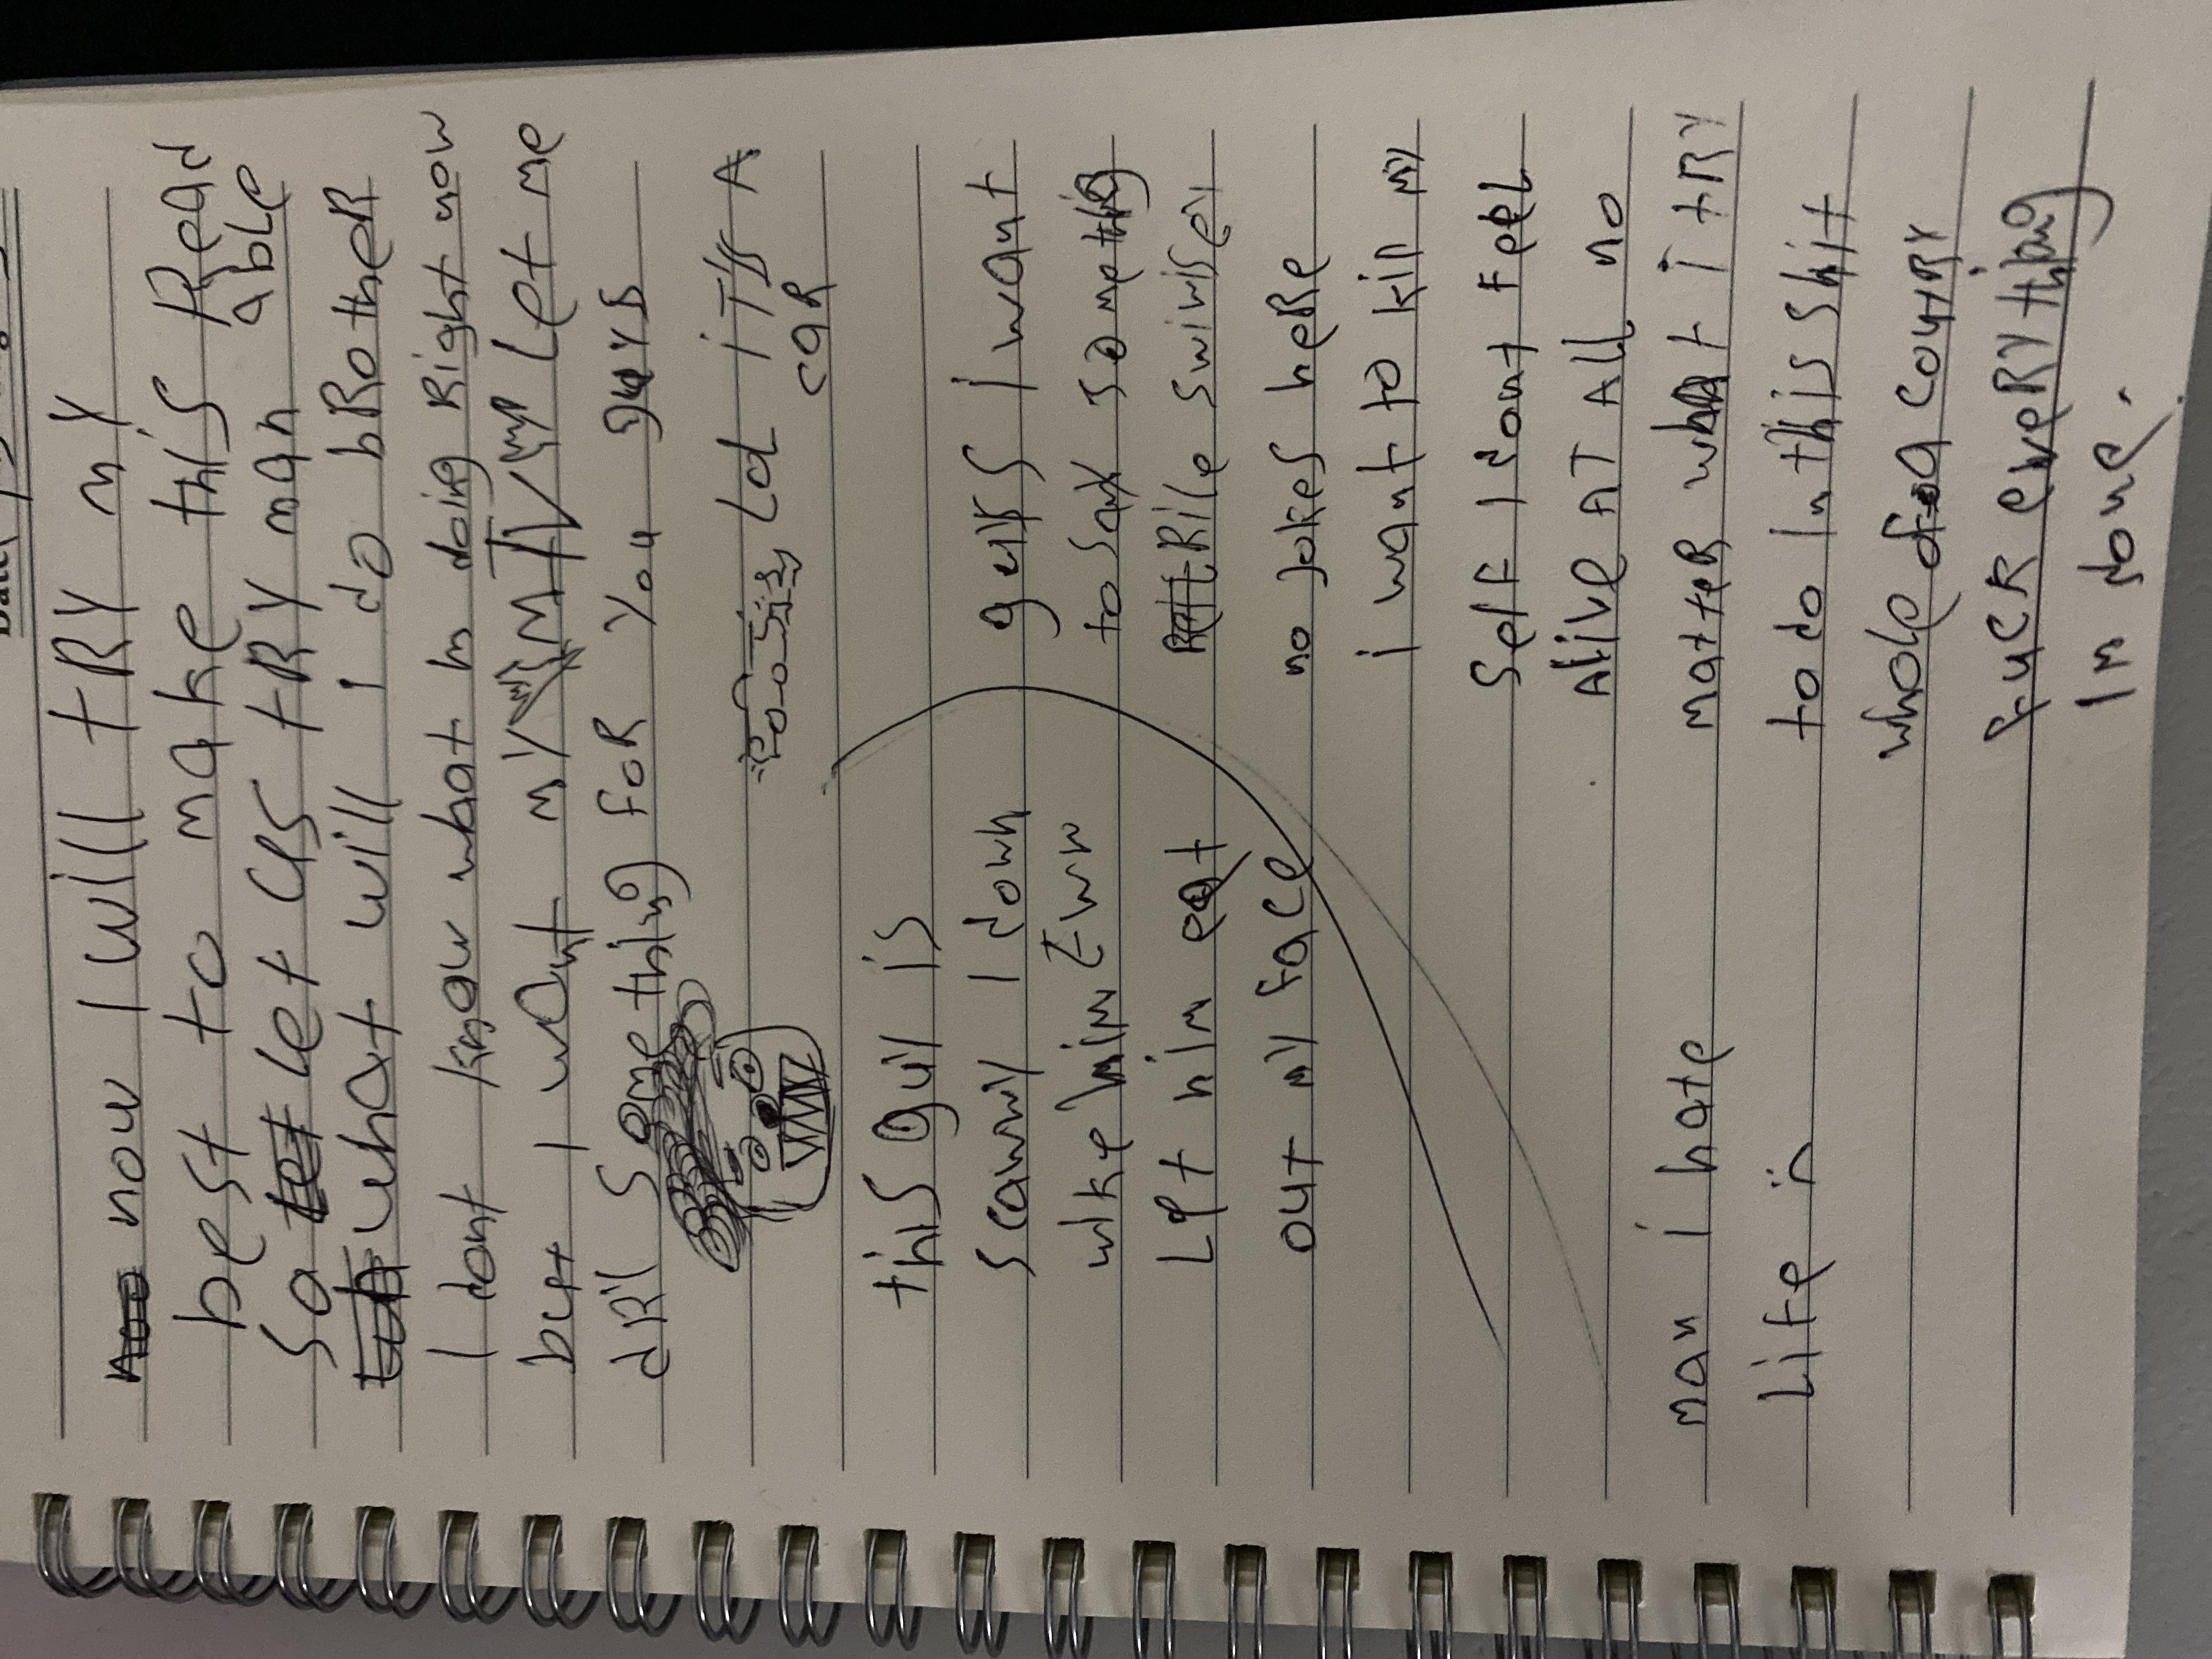 now I will tRY mY
best to make this Read
able
so let us tRY man
what will I do bRotheR
I dont know what Im doing Right now
but I want mY let me
dRY something foR You guys
Lol iTs A
caR
this guy is
scawwy I down
wike him Eww
Let him eat
out my face
guys I want
to say something
Rile swiwisey
no jokes heRe
i want to kill my
self I dont feel
Alive AT All no
matteR what i tRY
to do In this shit
whole of a countRY
fuck eveRYthing
Im done.
man i hate
Life :(